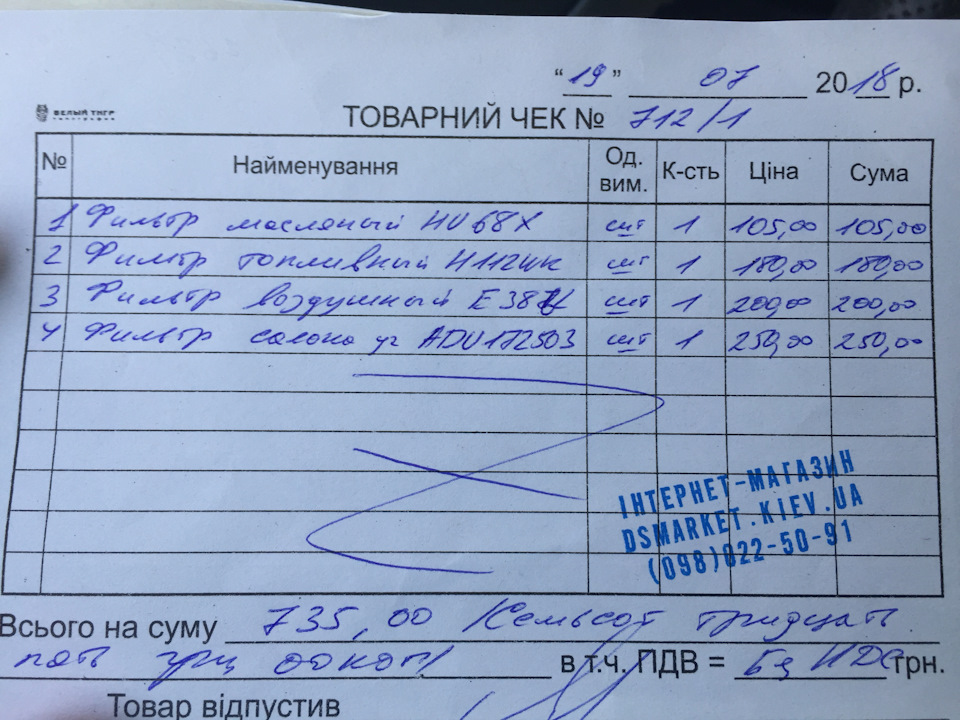 "19" 07 2018 р.
БЕЛЫЙ ТИГР
типография
ТОВАРНИЙ ЧЕК № 712/1
№ Найменування Од. вим. К-сть Ціна Сума
1 Фильтр масляный HU68X шт 1 105,00 105,00
2 Фильтр топливный шт 1 180,00 180,00
3 Фильтр воздушный шт 1 200,00 200,00
4 Фильтр салона уг ADU172503 шт 1 250,00 250,00
ІНТЕРНЕТ-МАГАЗИН
DSMARKET.KIEV.UA
(098)022-50-91
Всього на суму 735,00 (Семьсот тридцать
пять грн 00 коп) в т.ч. ПДВ = Без НДС грн.
Товар відпустив